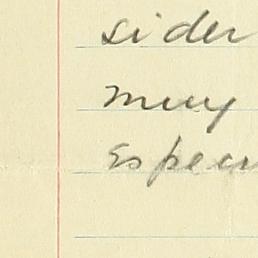 sider
muy
espec